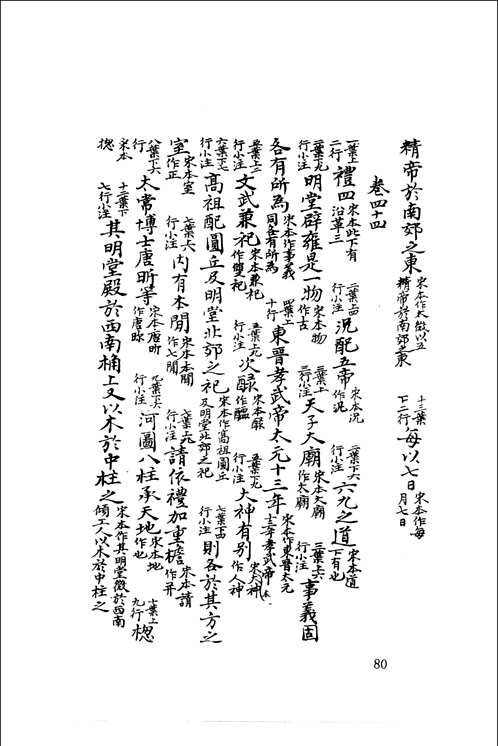 精帝於南郊之東 宋本作太微以五精帝於南郊之東 十二葉下二行 每以七日 宋本作每月七日
卷四十四
一葉上二行 禮四 宋本此下有沿革三 二葉上四行小注 況配五帝 宋本況作祝 二葉下六行小注 六九之道 宋本道下有也
二葉下九行小注 明堂辟雍是一物 宋本物作古 三葉上三行小注 天子大廟 宋本大廟作太廟 三葉上六行小注 事義固
各有所為 宋本作事義同各有所為 四葉上十行 東晉孝武帝太元十三年 宋本作東晉太元十三年孝武帝
五葉上二行小注 文武兼祀 宋本兼祀作雙祀 五葉上九行小注 次醁 宋本醁作醖 五葉下九行小注 大神有別 宋大神作人神
六葉下二行小注 高祖配圜丘及明堂北郊之祀 宋本作高祖圜丘及明堂北郊之祀 七葉下四行小注 則各於其方之
室 宋本室作正 七葉上六行小注 内有本閒 宋本本閒作七閒 七葉上九行小注 請依禮加重檐 宋本請作并
八葉下六行 太常博士唐昕等 宋本唐昕作唐眕 七葉下六行小注 河圖八柱承天地 宋本地作也 十葉上九行 楤
宋本楤 十二葉下七行小注 其明堂殿於西南桷上又以木於中柱之 宋本作其明堂徵於西南傾工人以木於中柱之
80